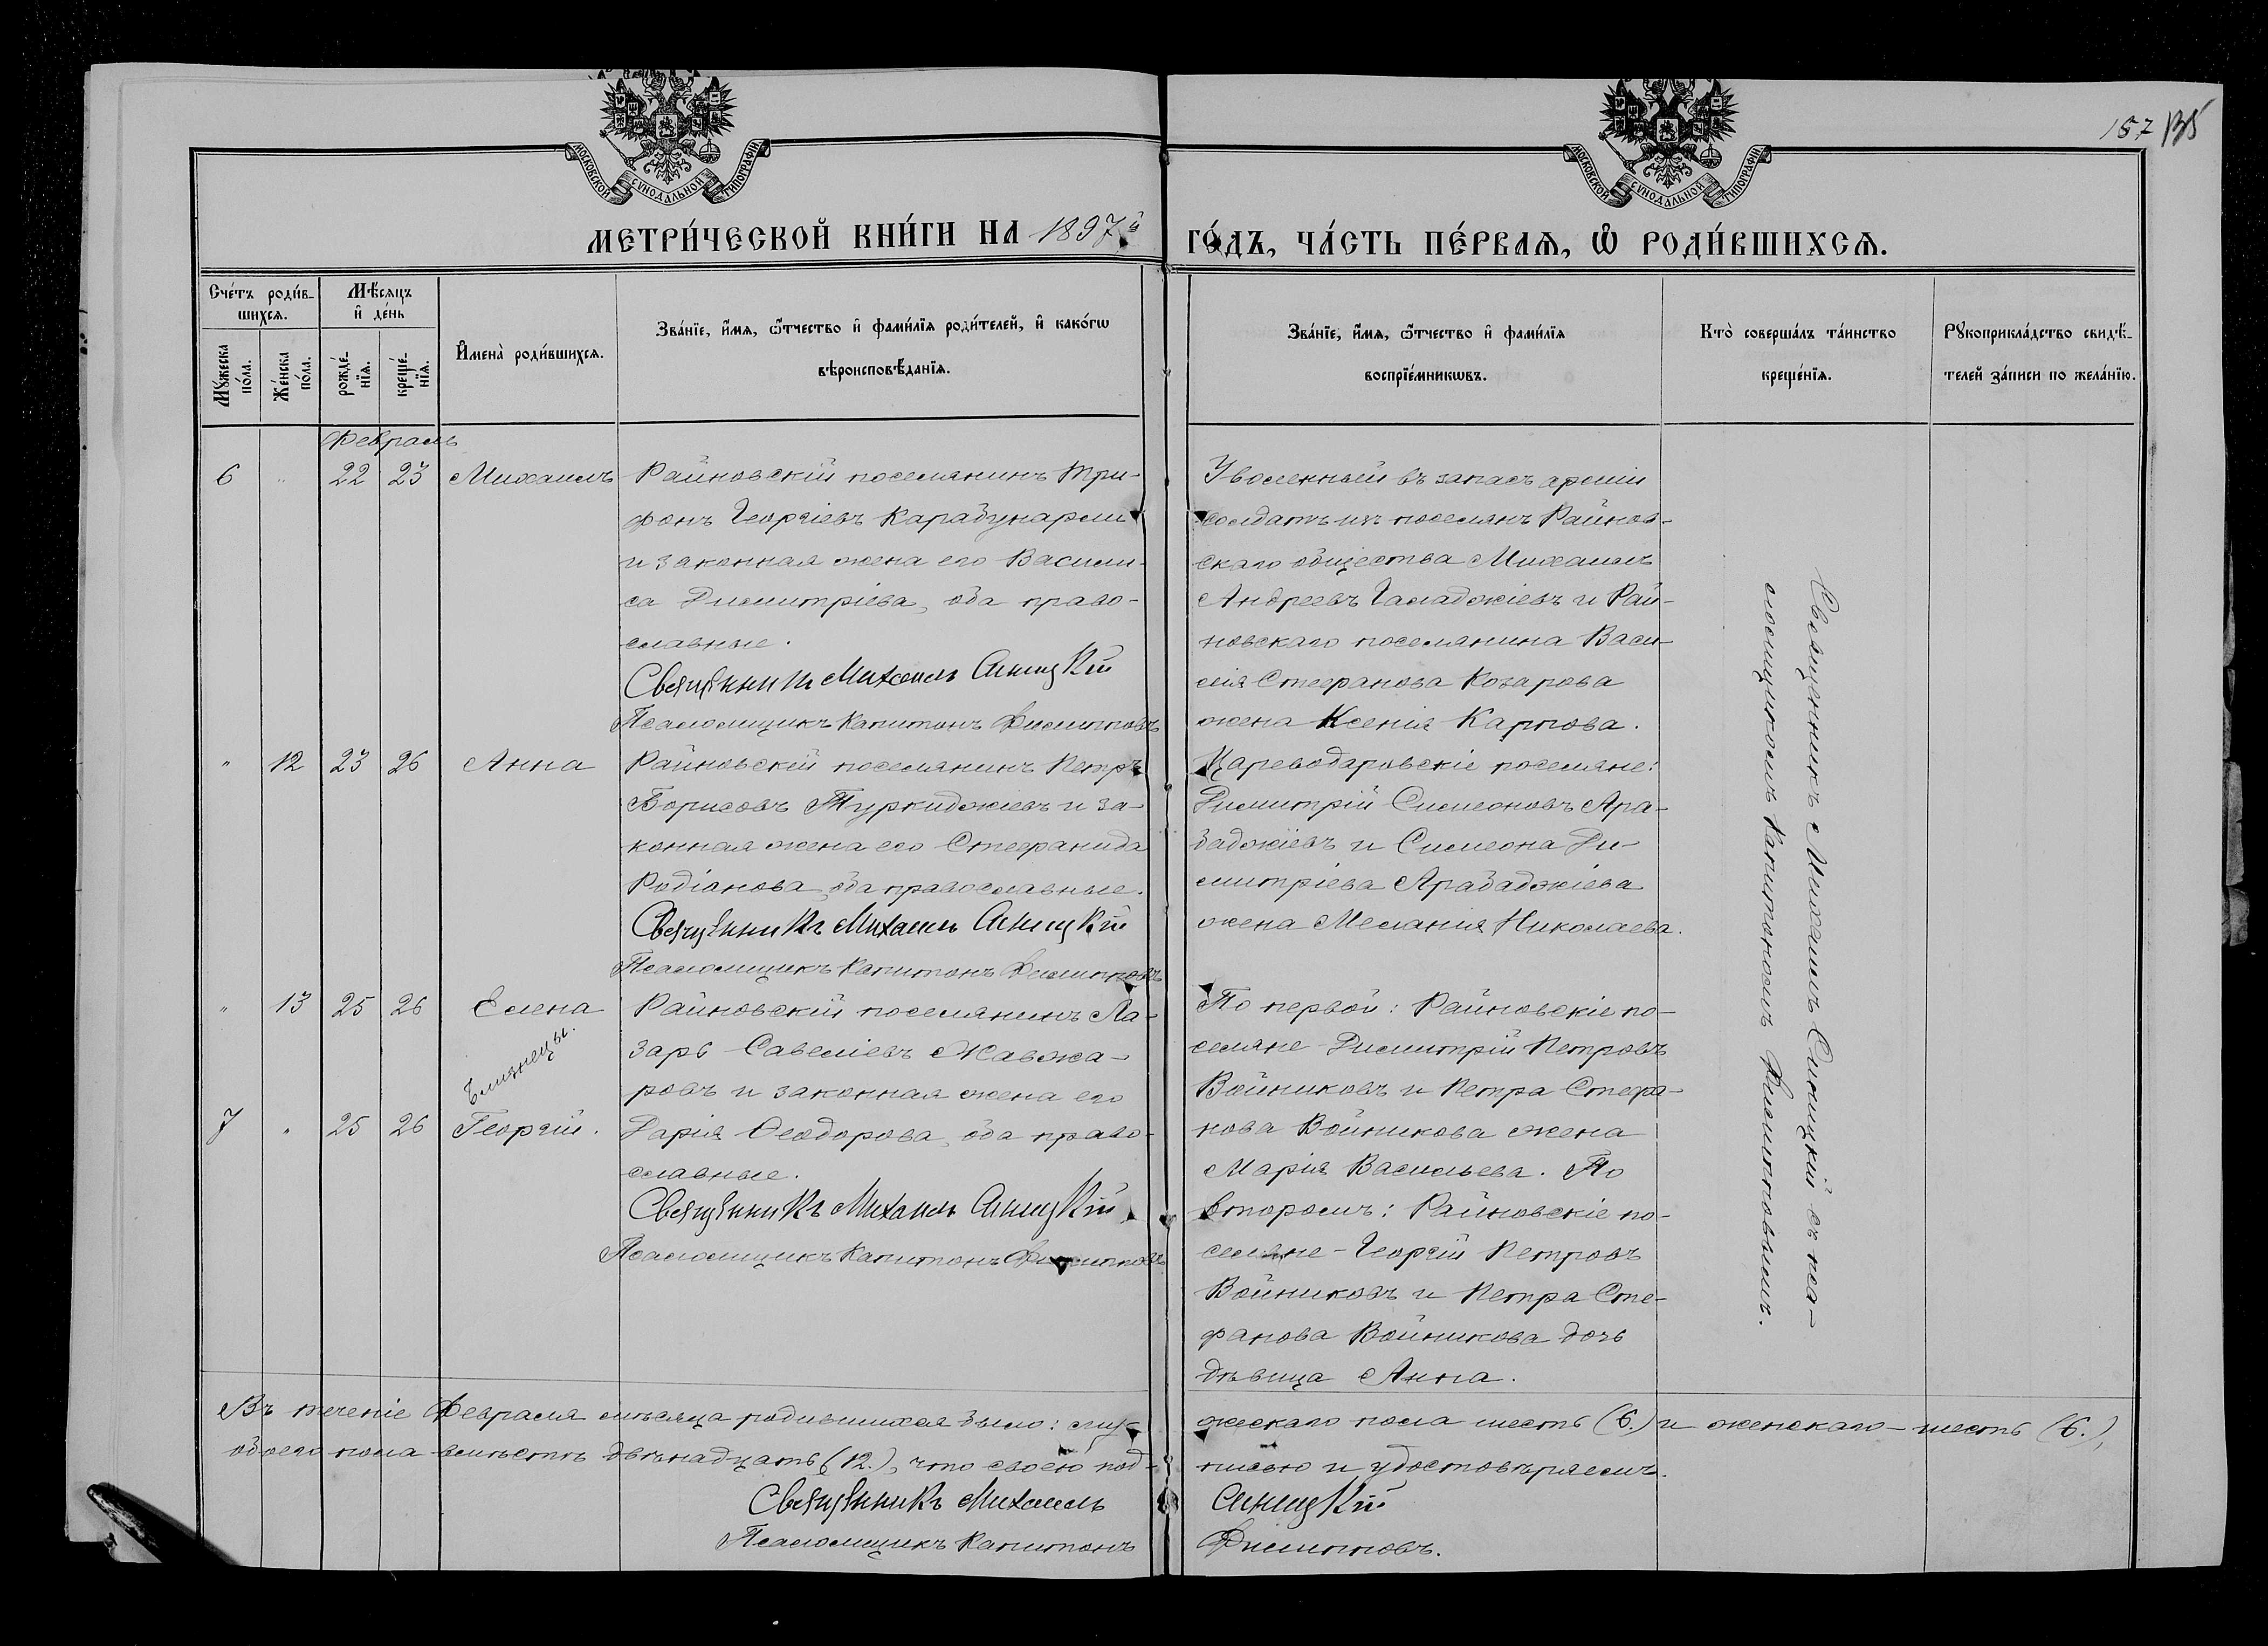 157 135
МОСКОВСКОЙ СѴНОДАЛЬНОЙ ТИПОГРАФІИ
МОСКОВСКОЙ СѴНОДАЛЬНОЙ ТИПОГРАФІИ
МЕТРИ́ЧЕСКОЙ КНИ́ГИ НА 1897й ГО́ДЪ, ЧА́СТЬ ПЕ́РВАѦ, Ѡ РОДИ́ВШИХСѦ.
Сче́тъ роди́в-
шихсѧ.
Мꙋ́жеска по́ла.
Же́нска по́ла.
Мѣ́сѧцъ
и҆ де́нь
рожде́-
нїѧ.
креще́-
нїѧ.
И҆мена̀ роди́вшихсѧ.
Зва́нїе, и҆́мѧ, ѻ҆́тчество и҆ фами́лїѧ роди́телей, и҆ како́гѡ
вѣроисповѣ́данїѧ.
Зва́нїе, и҆́мѧ, ѻ҆́тчество и҆ фами́лїѧ
воспрїе́мникѡвъ.
Кто̀ соверша́лъ та́инство
креще́нїѧ.
Рꙋкоприкла́дство свидѣ́-
телей за́писи по жела́нїю.
Февраль
6 " 22 23 Михаилъ
Райновскій поселянинъ Три-
фонъ Георгіевъ Карабунарли
и законная жена его Васили-
са Димитріева, оба право-
славные.
Священникъ Михаилъ Синицкій
Псаломщикъ Капитонъ Филипповъ
Уволенный въ запасъ арміи
солдатъ изъ поселянъ Райнов-
скаго общества Михаилъ
Андреевъ Гамаджіевъ и Рай-
новскаго поселянина Васи-
лія Стефанова Козарова
жена Ксенія Карпова.
" 12 23 26 Анна
Райновскій поселянинъ Петръ
Борисовъ Туркиджіевъ и за-
конная жена его Стефанида
Родіонова, оба православные.
Священникъ Михаилъ Синицкій
Псаломщикъ Капитонъ Филипповъ
Цареводаровскіе поселяне:
Димитрій Симеоновъ Ара-
баджіевъ и Симеона Ди-
митріева Арабаджіева
жена Меланія Николаева.
" 13 25 26 Елена
Близнецы.
7 " 25 26 Георгій.
Райновскій поселянинъ Ла-
зарь Савеліевъ Жавжа-
ровъ и законная жена его
Дарія Ѳеодорова, оба право-
славные.
Священникъ Михаилъ Синицкій
Псаломщикъ Капитонъ Филипповъ
По первой: Райновскіе по-
селяне Димитрій Петровъ
Войниковъ и Петра Стефа-
нова Войникова жена
Марія Васильева. По
второмъ: Райновскіе по-
селяне - Георгій Петровъ
Войниковъ и Петра Сте-
фанова Войникова дочь
дѣвица Анна.
Священникъ Михаилъ Синицкій съ пса-
ломщикомъ Капитономъ Филипповымъ.
Въ теченіе Февраля мѣсяца родившихся было: му-
жескаго пола шесть (6.) и женскаго - шесть (6.),
обоего пола вмѣстѣ двѣнадцать (12.), что своею под-
писью и удостовѣряемъ.
Священникъ Михаилъ Синицкій
Псаломщикъ Капитонъ Филипповъ.